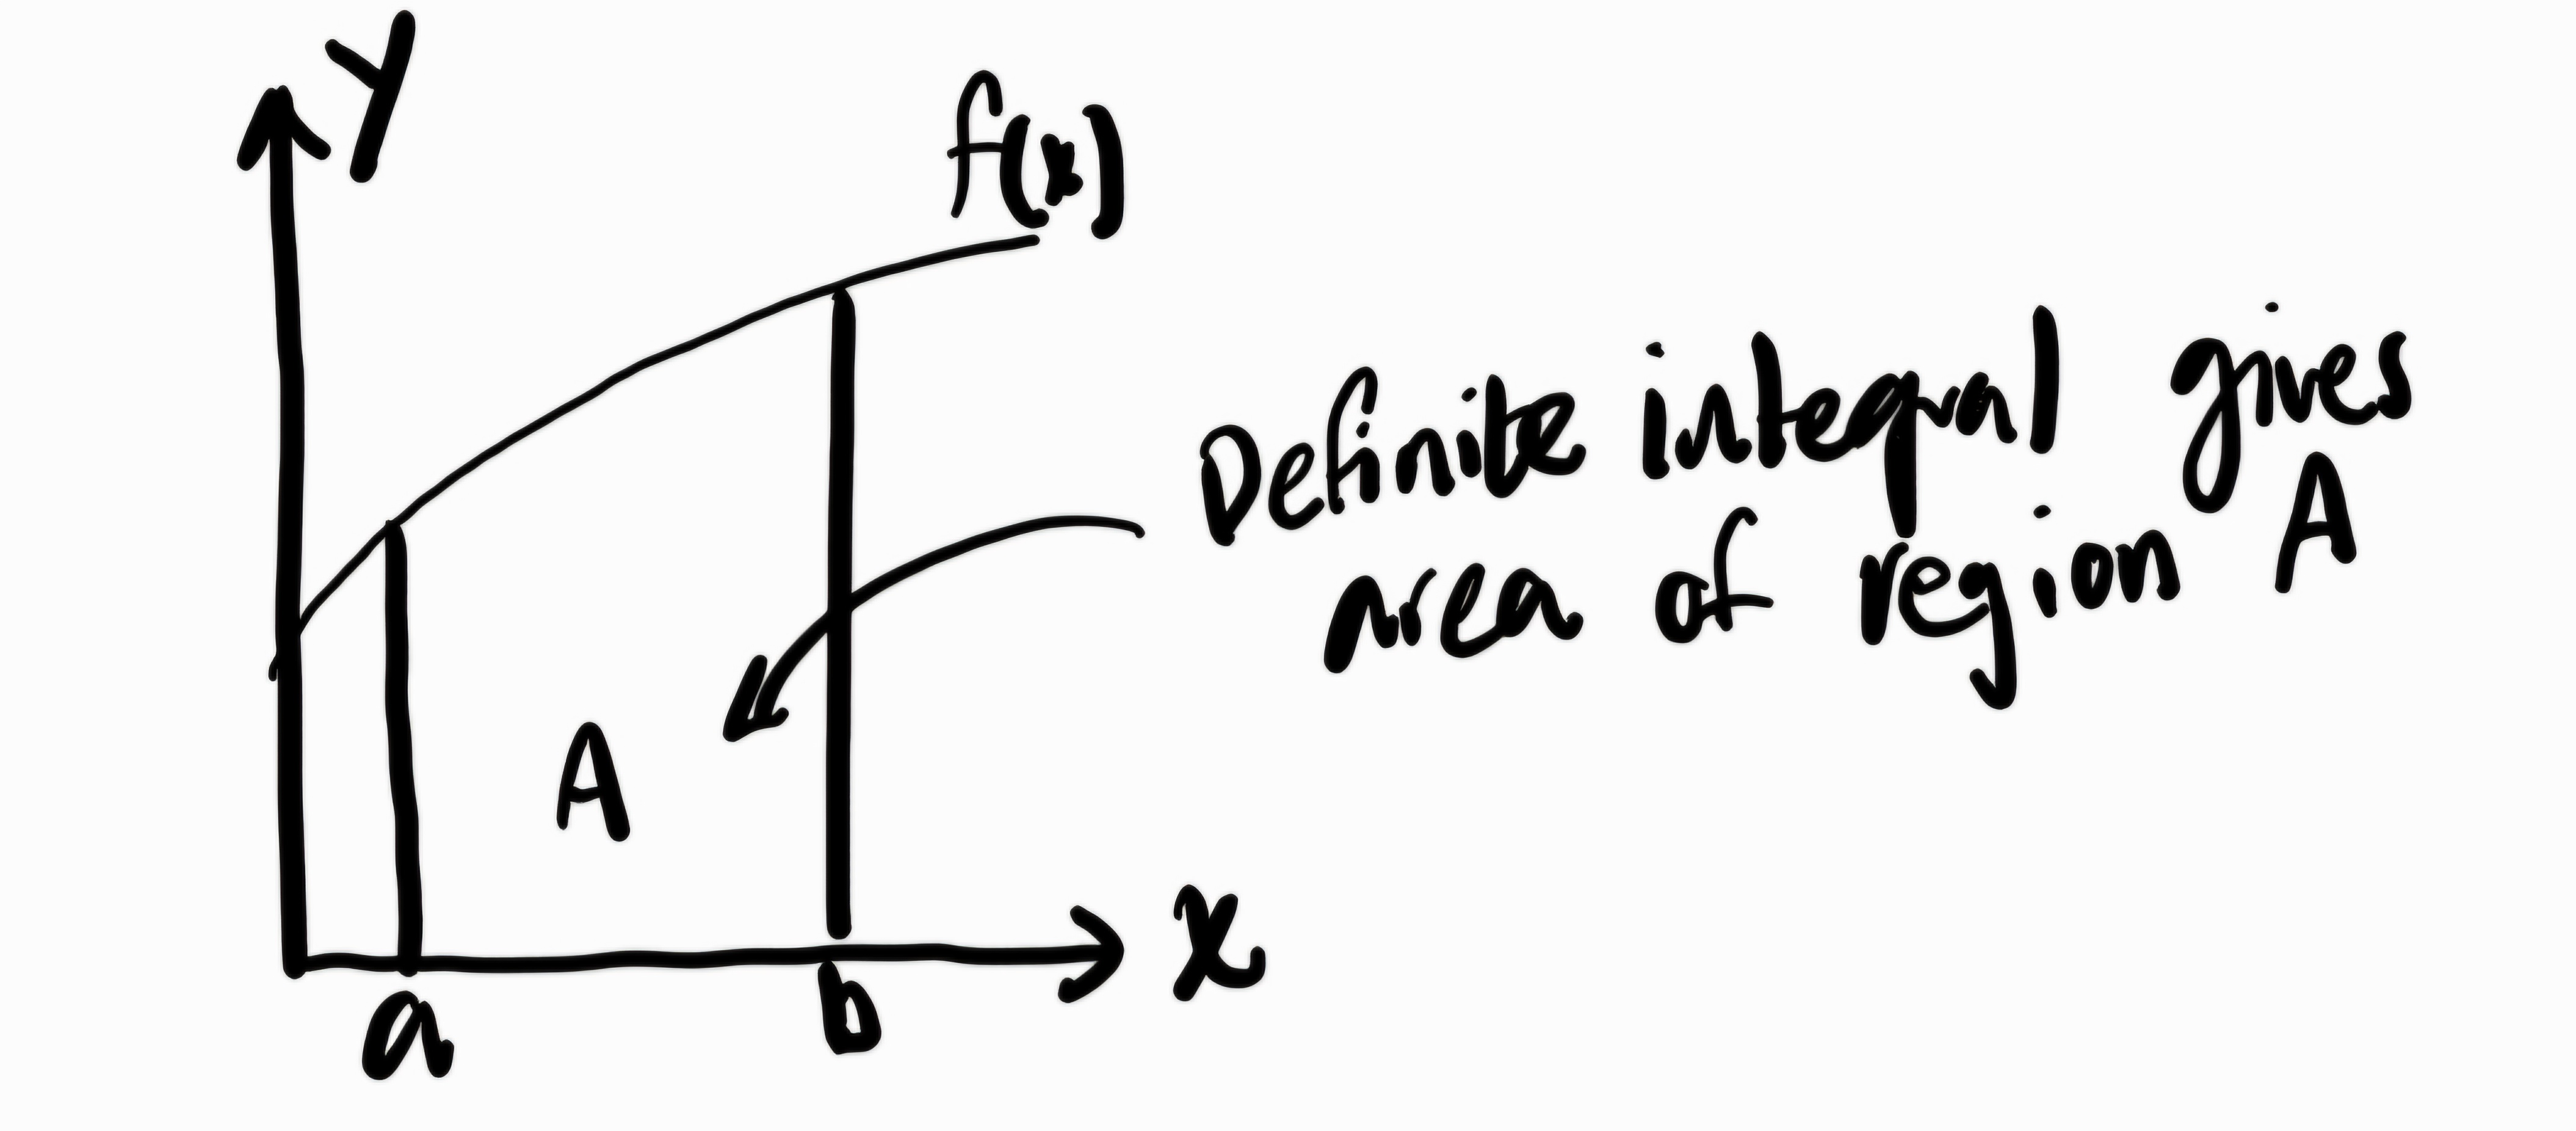 Y
f(x)
Definite integral gives
area of region A
A
x
a
b